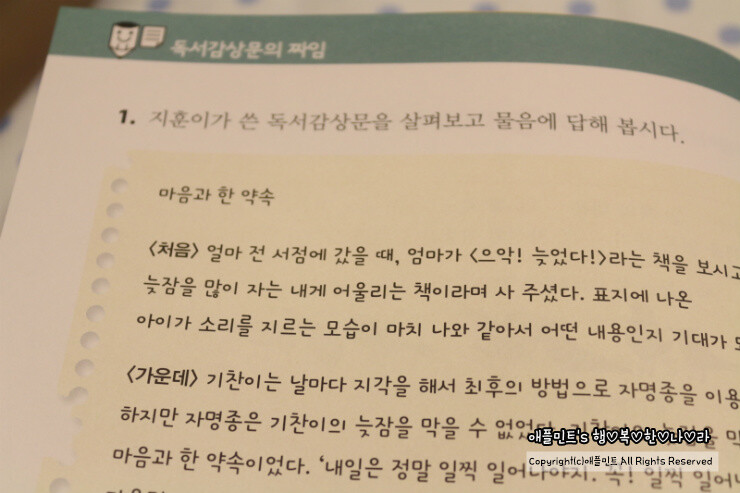 독서감상문의 짜임
1. 지훈이가 쓴 독서감상문을 살펴보고 물음에 답해 봅시다.
마음과 한 약속
<처음> 얼마 전 서점에 갔을 때, 엄마가 <으악! 늦었다!>라는 책을 보시고
늦잠을 많이 자는 내게 어울리는 책이라며 사 주셨다. 표지에 나온
아이가 소리를 지르는 모습이 마치 나와 같아서 어떤 내용인지 기대가
<가운데> 기찬이는 날마다 지각을 해서 최후의 방법으로 자명종을 이용
하지만 자명종은 기찬이의 늦잠을 막을 수 없었다.
마음과 한 약속이었다. '내일은 정말 일찍 일어나야지. 꼭! 일찍 일어나
애플민트's 행♡복♡한♡나♡라
Copyright(c)애플민트 All Rights Reserved